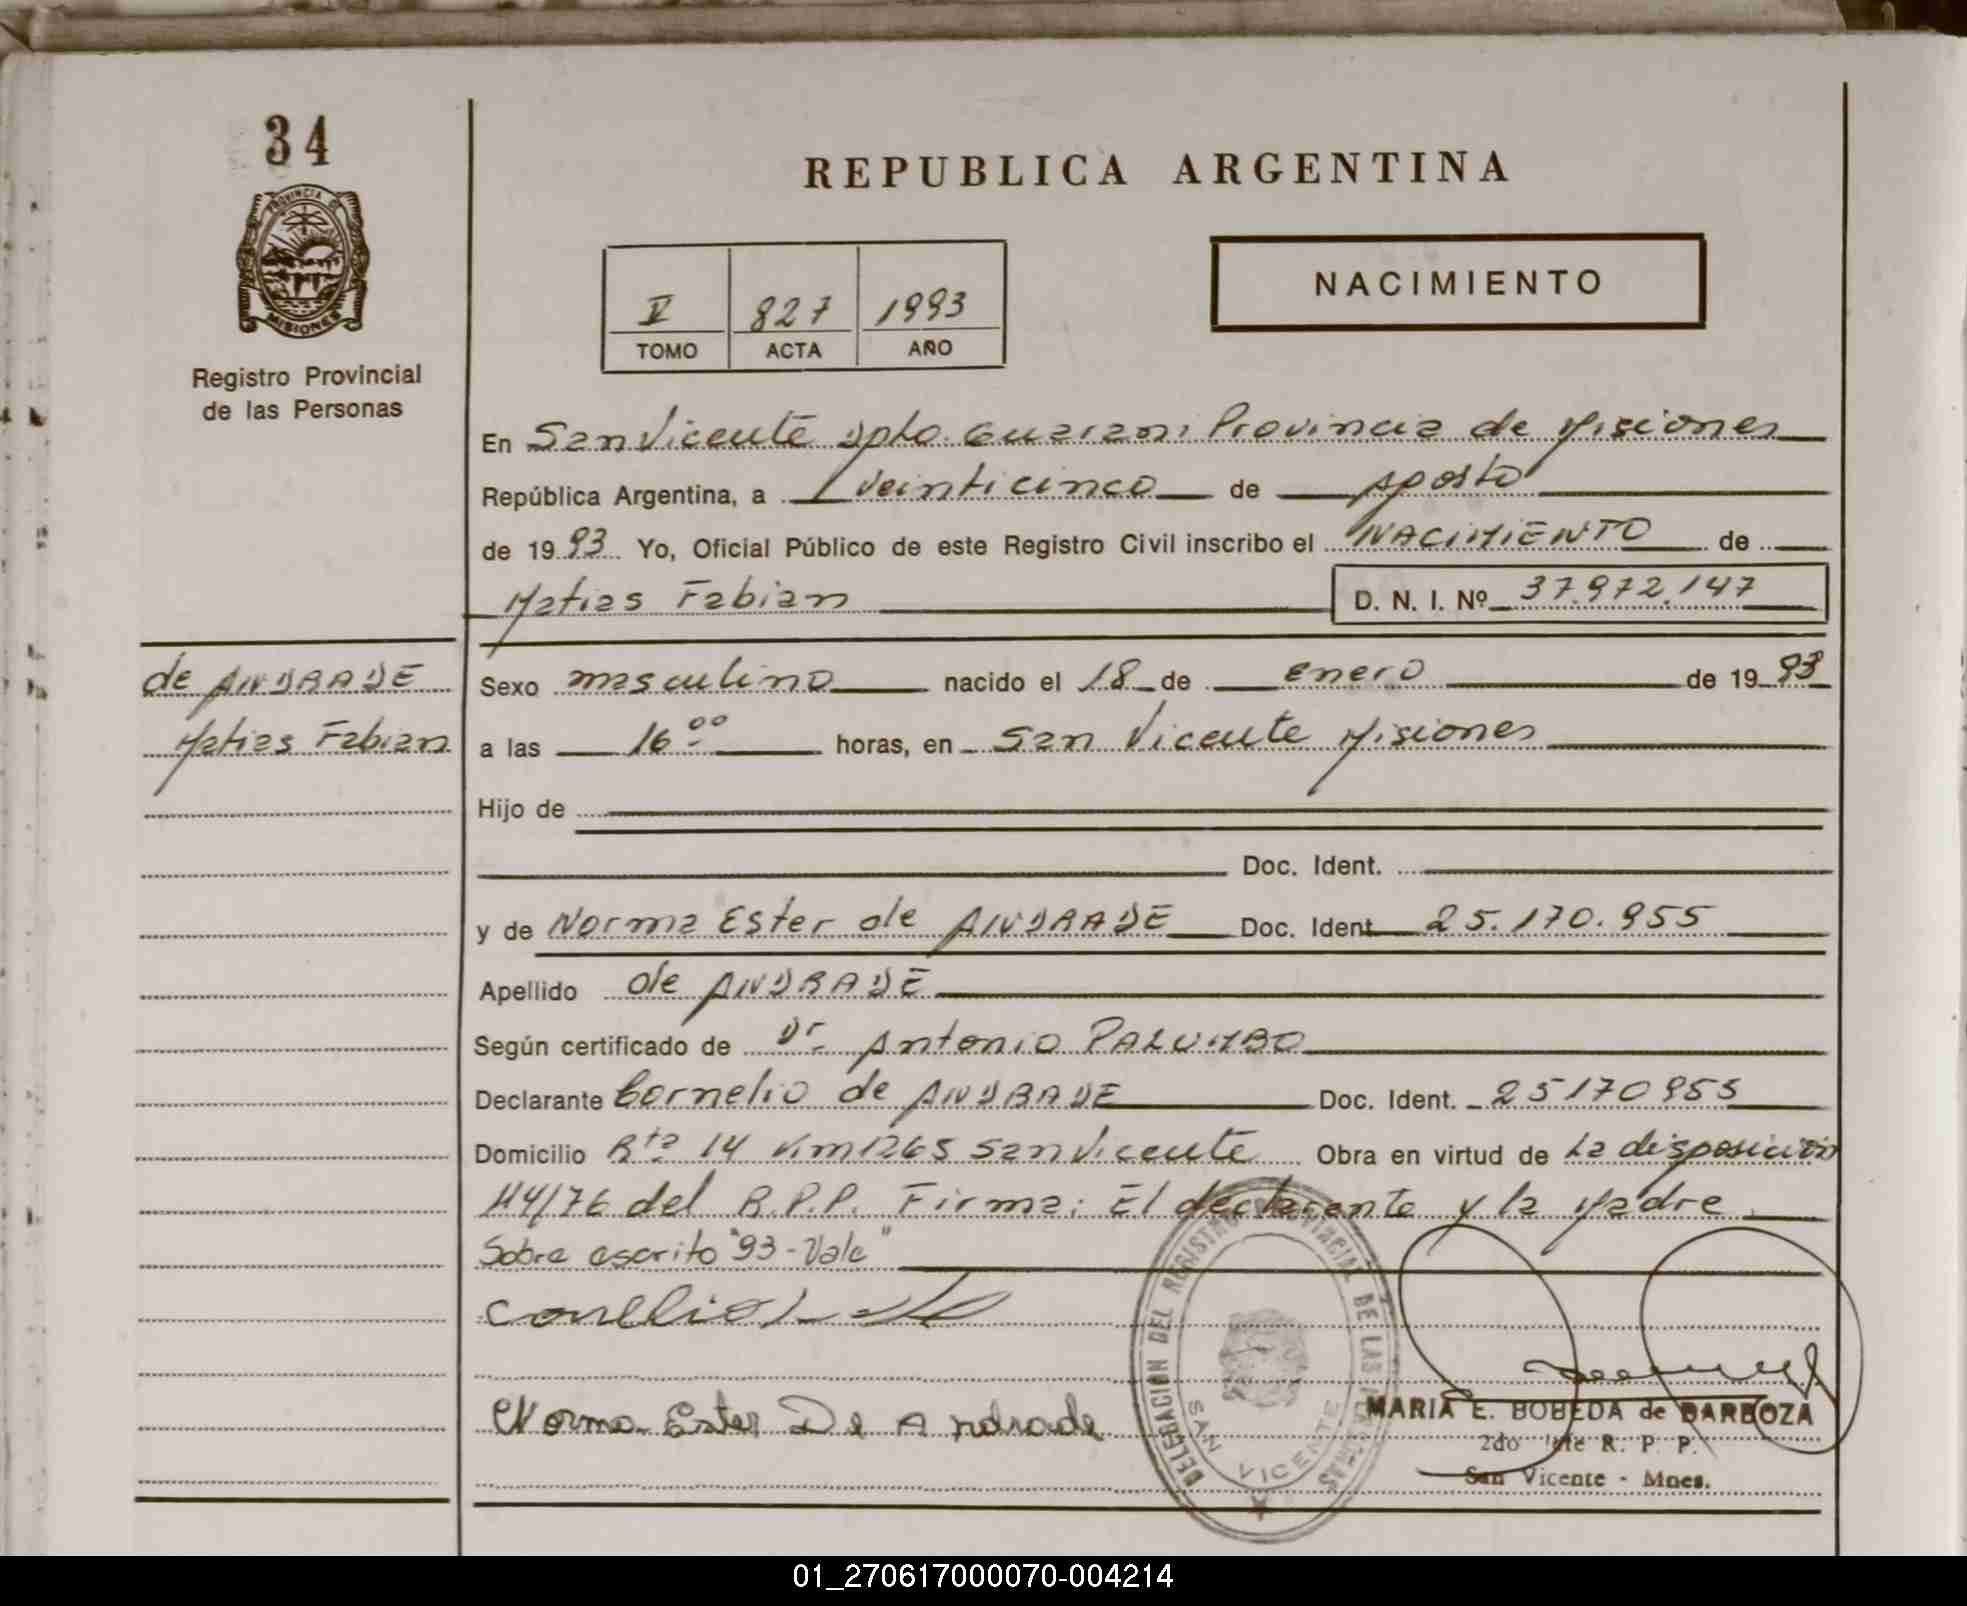 34
PROVINCIA DE
MISIONES
Registro Provincial
de las Personas
REPUBLICA ARGENTINA
V 827 1993
TOMO ACTA AÑO
NACIMIENTO
En San Vicente Dpto. Guarani Provincia de Misiones
República Argentina, a veinticinco de Agosto
de 1993 Yo, Oficial Público de este Registro Civil inscribo el NACIMIENTO de
Matias Fabian D. N. I. Nº 37.972.147
de ANDRADE
Matias Fabian
Sexo masculino nacido el 18 de enero de 1993
a las 16 00 horas, en San Vicente Misiones
Hijo de
Doc. Ident.
y de Norma Ester de ANDRADE Doc. Ident 25.170.955
Apellido de ANDRADE
Según certificado de Dr. Antonio PALUMBO
Declarante Cornelio de ANDRADE Doc. Ident. 25170955
Domicilio Rta 14 Km 1265 San Vicente Obra en virtud de La disposición
114/76 del R.P.P. Firma: El declarante y la Madre
Sobre escrito "93-Vale"
Norma Ester De Andrade
DELEGACION DEL REGISTRO PROVINCIAL DE LAS PERSONAS
SAN VICENTE
MARIA E. BOBEDA de BARBOZA
2do Jefe R. P. P.
San Vicente - Mnes.
01_270617000070-004214